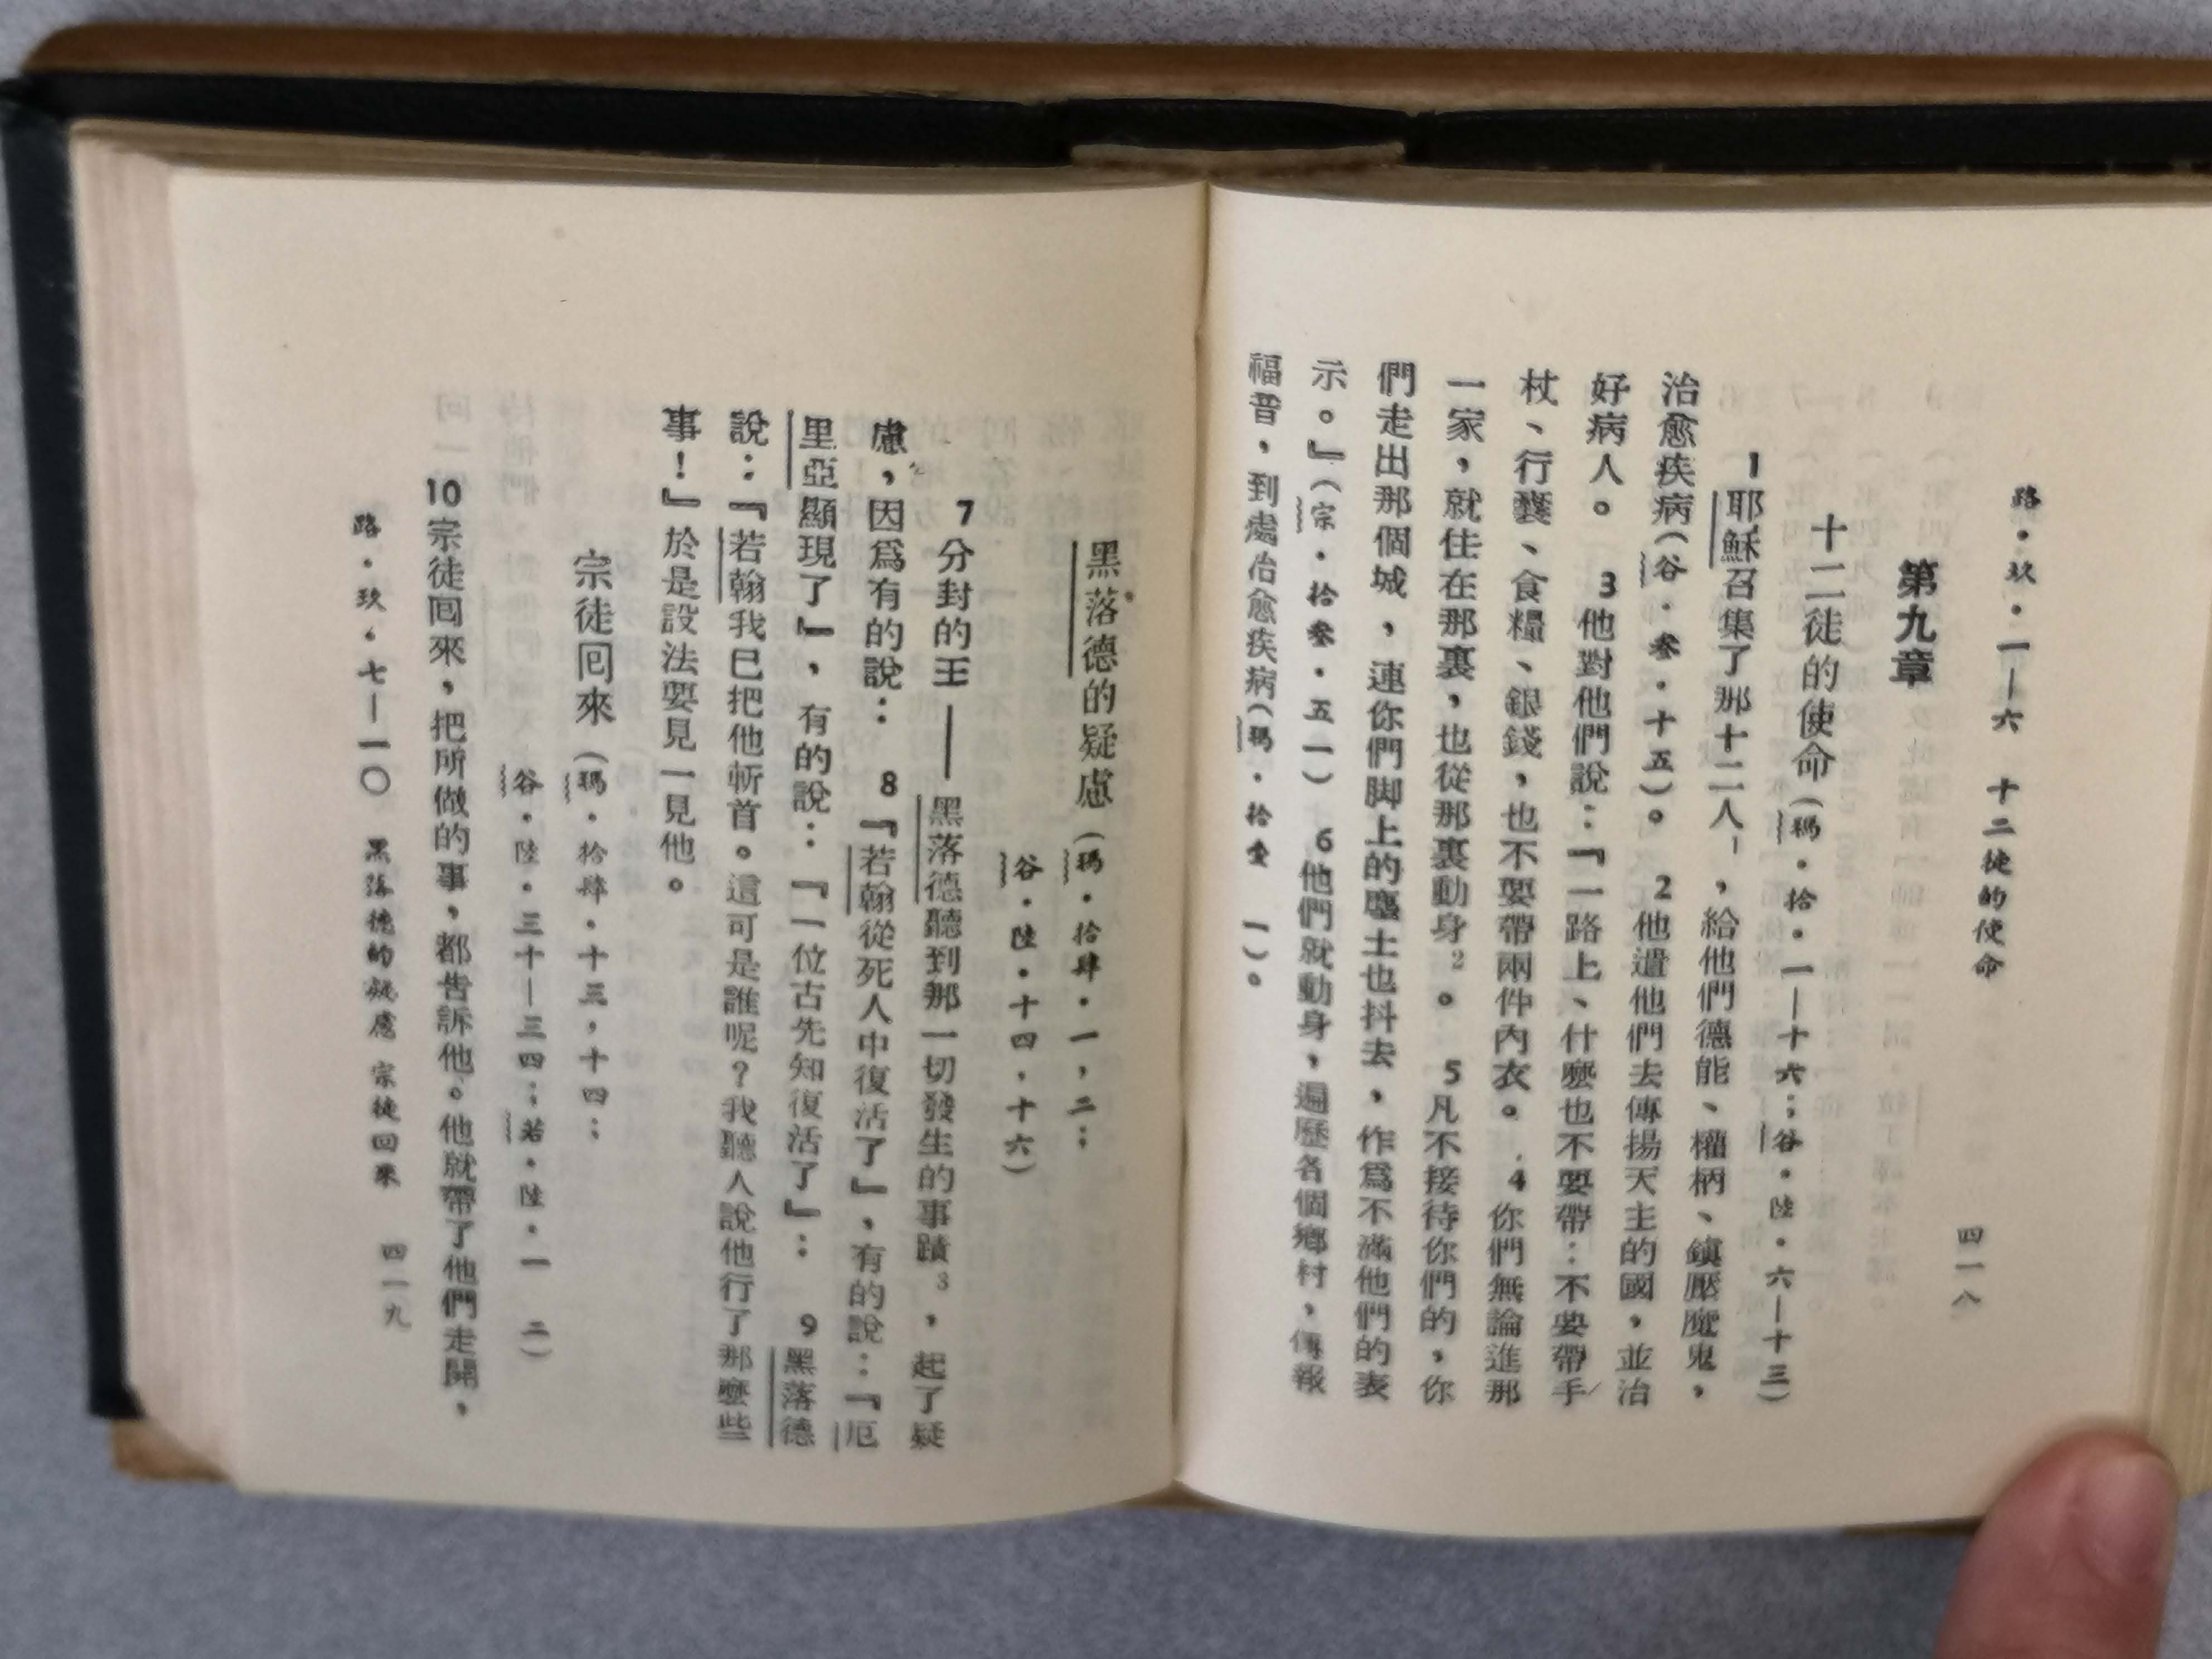 路・玖・一—六　十二徒的使命　四一八
第九章
十二徒的使命（瑪・拾・一—十六；谷・陸・六—十三）
1耶穌召集了那十二人1，給他們德能、權柄、鎮壓魔鬼，
治愈疾病（谷・叁・十五）。　2他遣他們去傳揚天主的國，並治
好病人。　3他對他們說：『一路上、什麼也不要帶：不要帶手
杖、行囊、食糧、銀錢，也不要帶兩件內衣。　4你們無論進那
一家，就住在那裏，也從那裏動身2。　5凡不接待你們的，你
們走出那個城，連你們脚上的塵土也抖去，作爲不滿他們的表
示。』（宗・拾叁・五一）　6他們就動身，遍歷各個鄉村，傳報
福音，到處治愈疾病（瑪・拾壹　一）。
黑落德的疑慮（瑪・拾肆・一，二；
谷・陸・十四，十六）
7分封的王——黑落德聽到那一切發生的事蹟3，起了疑
慮，因爲有的說：　8『若翰從死人中復活了』，有的說：『厄
里亞顯現了』，有的說：『一位古先知復活了』：　9黑落德
說：『若翰我已把他斬首。這可是誰呢？我聽人說他行了那麼些
事！』於是設法要見一見他。
宗徒囘來（瑪・拾肆・十三，十四；
谷・陸・三十—三四；若・陸・一　二）
10宗徒囘來，把所做的事，都告訴他。他就帶了他們走開，
路・玖・七—一〇　黑落德的疑慮　宗徒回來　四一九